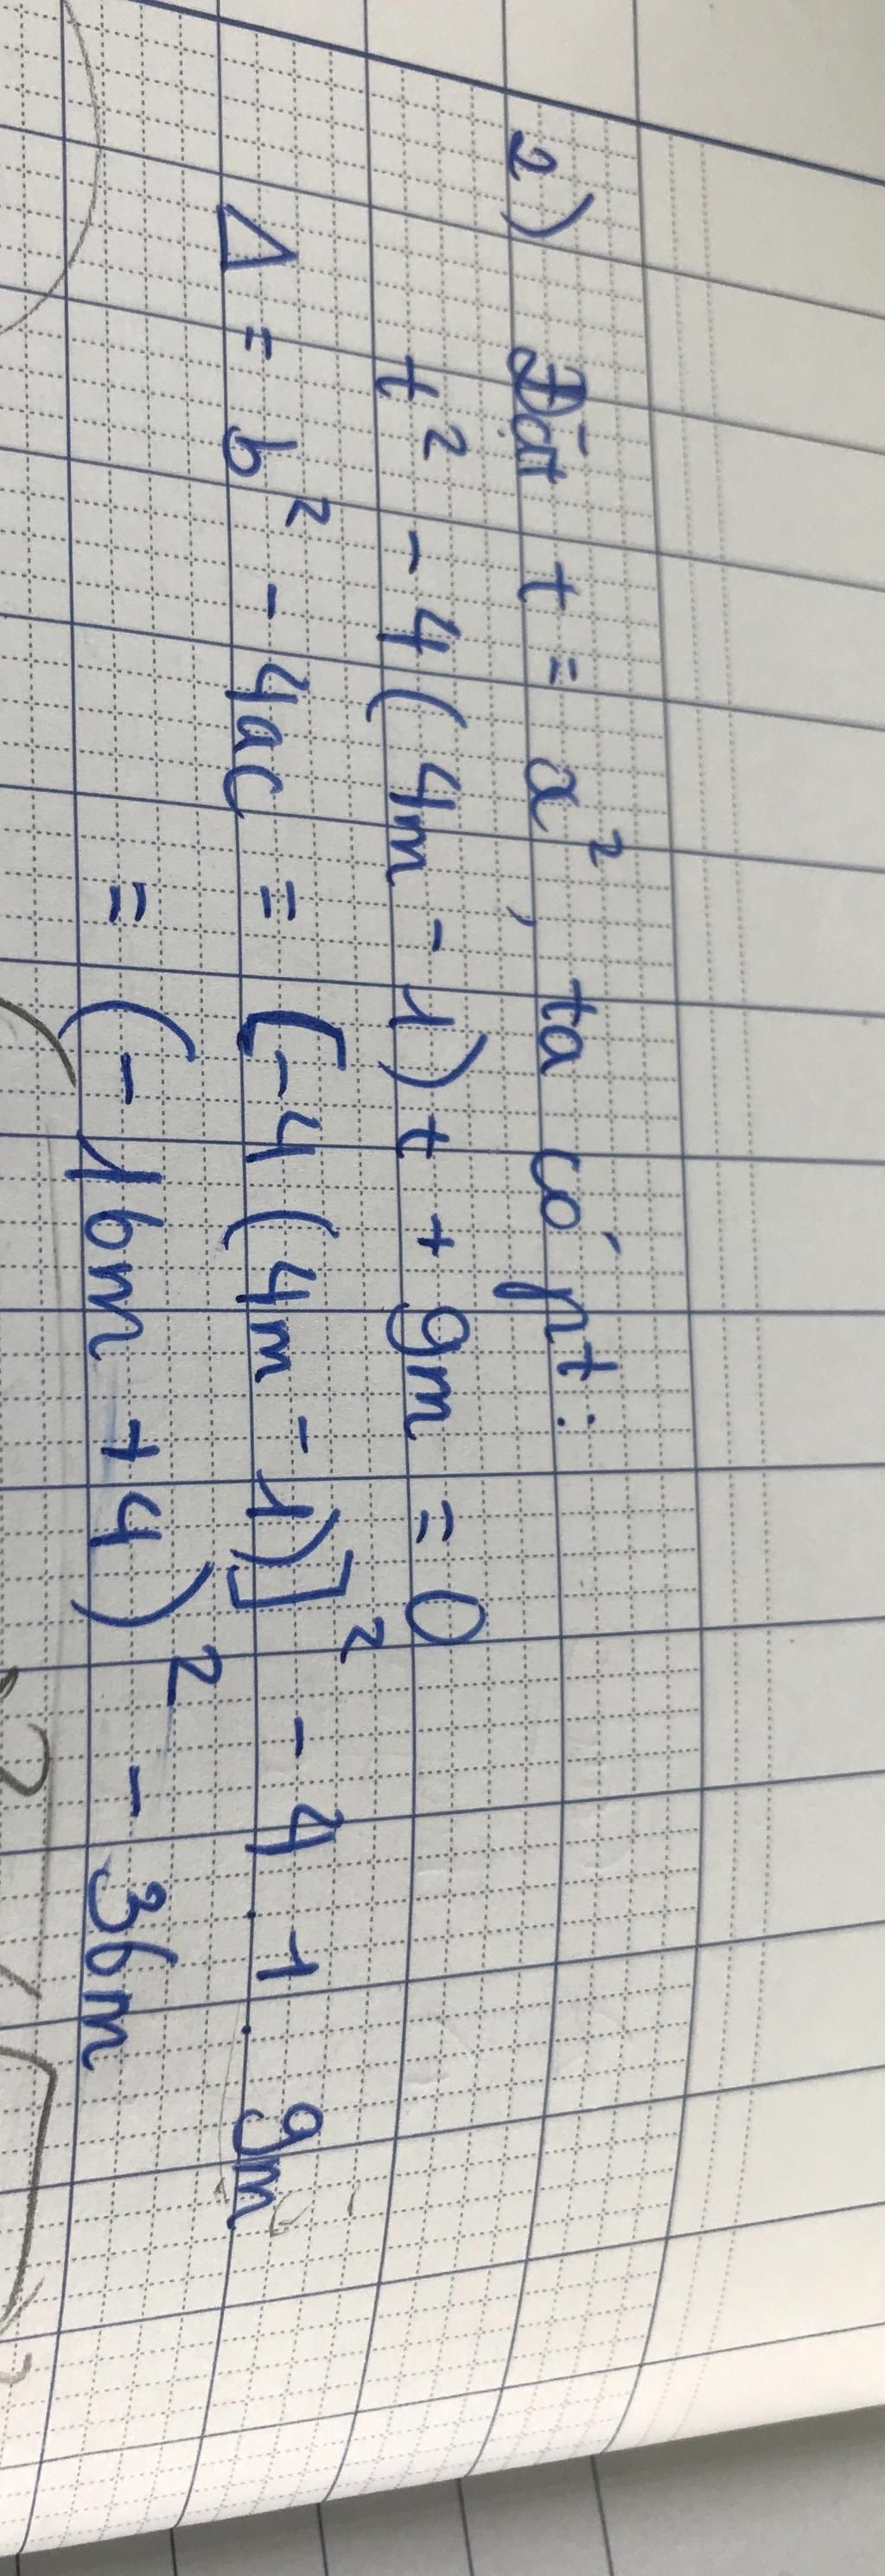 2) Đặt t = x², ta có pt:
t² - 4(4m - 1)t + 9m = 0
Δ = b² - 4ac = [-4(4m - 1)]² - 4 . 1 . 9m
= (-16m + 4)² - 36m